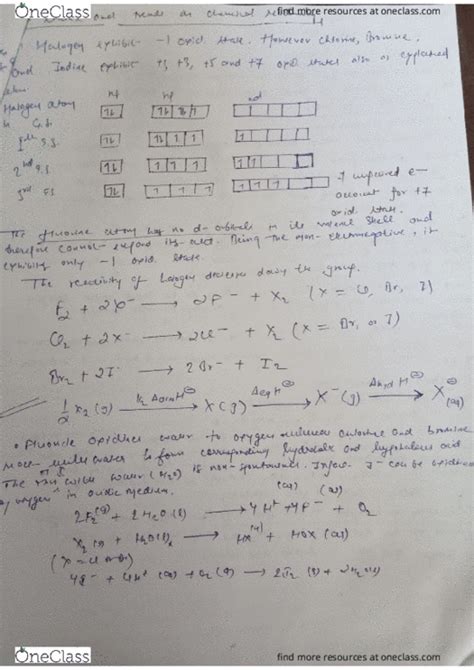 OneClass
find more resources at oneclass.com
and Trends in chemical
Halogen exhibit -1 oxid state. However chlorine, Bromine
and Iodine exhibit +1, +3, +5 and +7 oxid states also as explained
Halogen atom
ns np nd
G.S.
1st E.S.
2nd E.S.
3rd E.S.
7 unpaired e-
account for +7
oxid state.
The fluorine atom has no d-orbitals in its valence shell and
therefore cannot expand its octet. Being the most electronegative, it
exhibits only -1 oxid. state.
The reactivity of halogen decreases down the group.
F2 + 2X- → 2F- + X2 (X = Cl, Br, I)
Cl2 + 2X- → 2Cl- + X2 (X = Br, or I)
Br2 + 2I- → 2Br- + I2
1/2 X2(g) → X(g) → X-(g) → X-(aq)
• Fluorine oxidises water to oxygen whereas chlorine and bromine
react with water to form corresponding hydrohalic and hypohalous acid
The of I2 with water (H2O) is non-spontaneous. Infact I- can be oxidised
by oxygen in acidic medium.
2F2(g) + 2H2O(l) → 4H+ + 4F- + O2
X2(g) + H2O(l) → HX(aq) + HOX(aq)
(X = Cl or Br)
4I- + 4H+(aq) + O2(g) → 2I2(s) + 2H2O(l)
OneClass
find more resources at oneclass.com